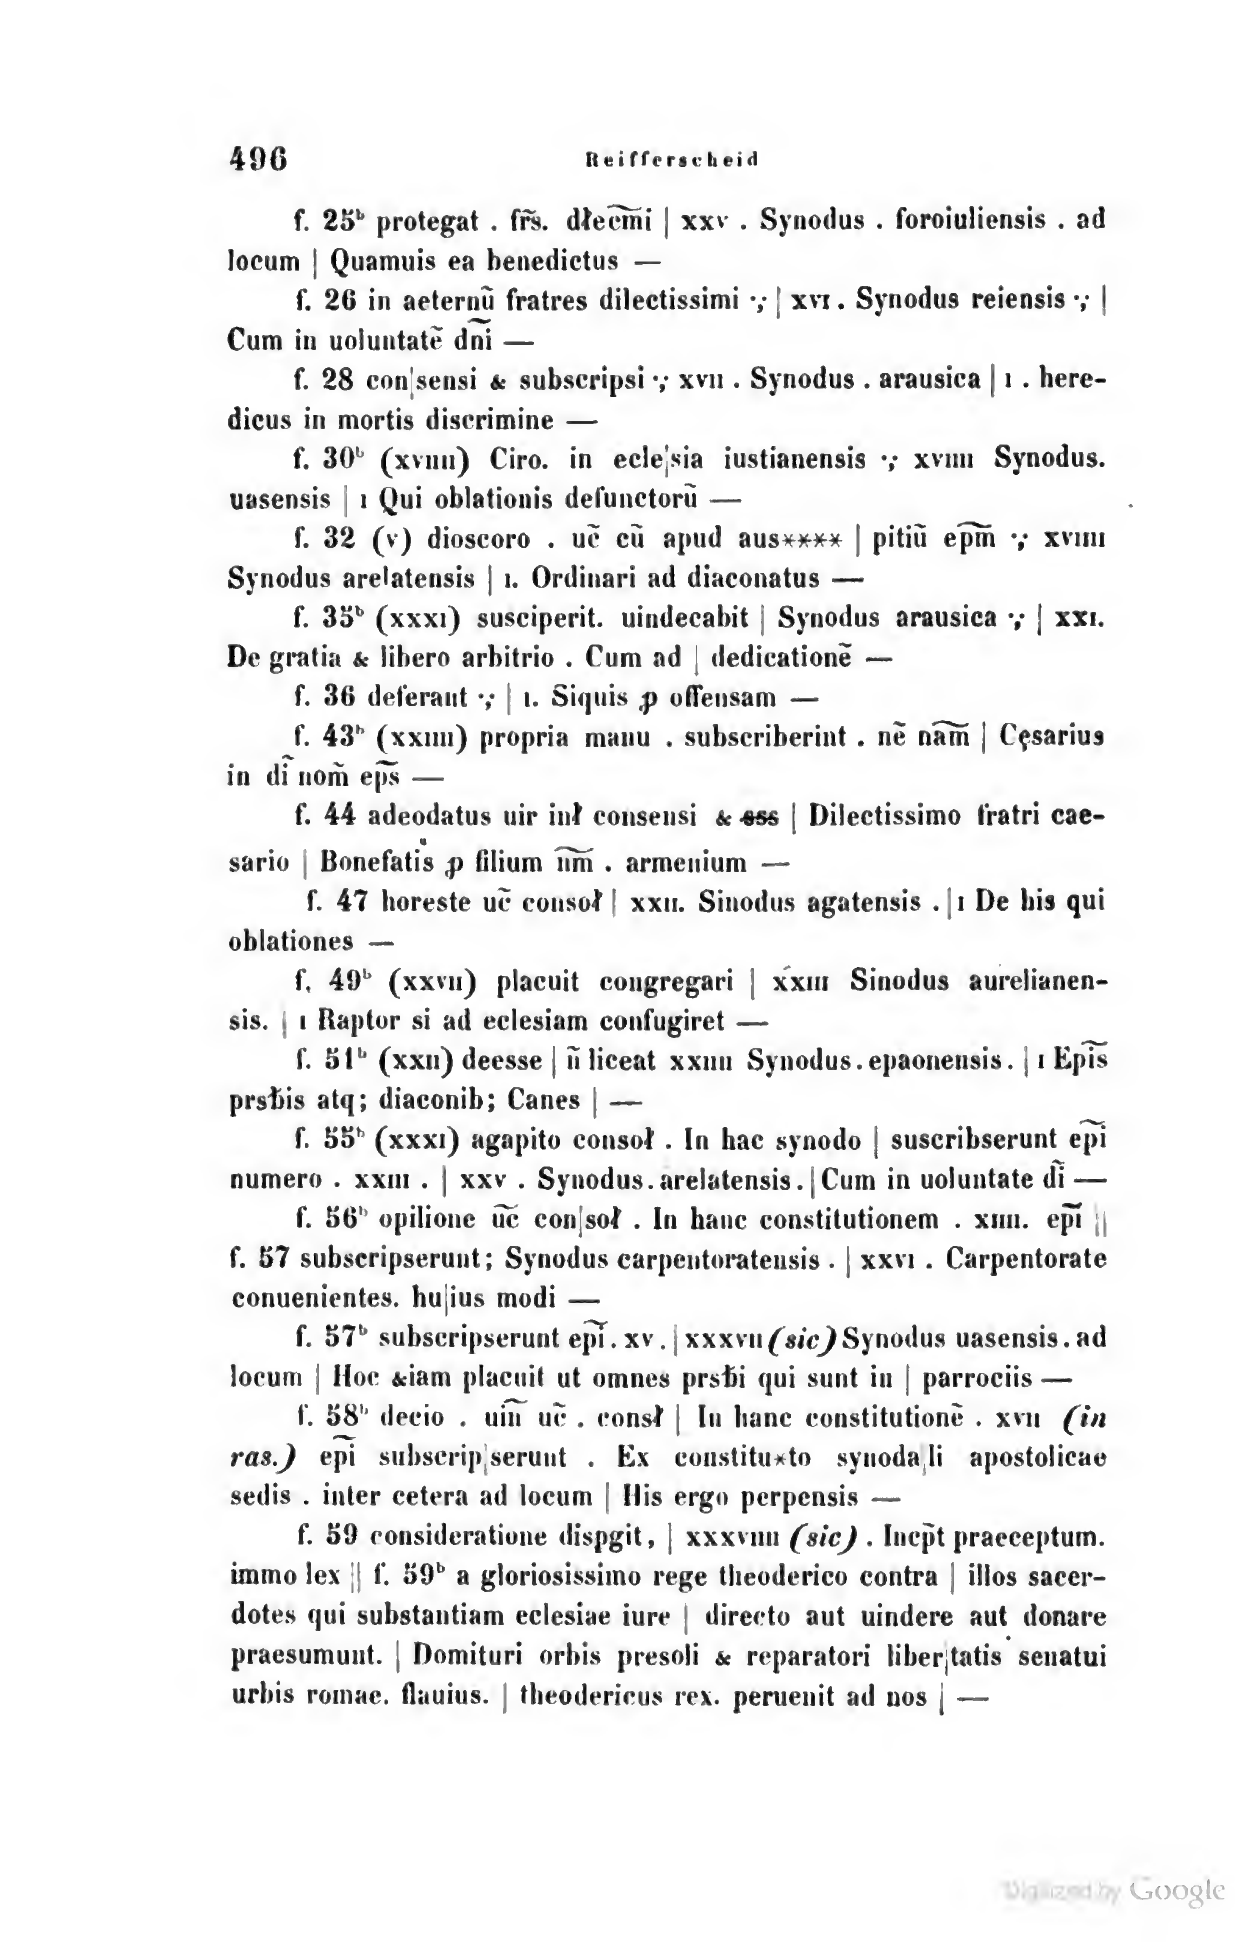 496 Reifferscheid
f. 25ᵇ protegat . fr̃s. dłec͠mi | xxv . Synodus . foroiuliensis . ad
locum | Quamuis ea benedictus —
f. 26 in aeternũ fratres dilectissimi ·,· | xvi . Synodus reiensis ·,· |
Cum in uoluntatẽ dñi —
f. 28 con|sensi & subscripsi ·,· xvii . Synodus . arausica | i . here-
dicus in mortis discrimine —
f. 30ᵇ (xviiii) Ciro. in ecle|sia iustianensis ·,· xviiii Synodus.
uasensis | i Qui oblationis defunctorũ —
f. 32 (v) dioscoro . uc̃ cũ apud aus**** | pitiũ ep͠m ·,· xviiii
Synodus arelatensis | i. Ordinari ad diaconatus —
f. 35ᵇ (xxxi) susciperit. uindecabit | Synodus arausica ·,· | xxi.
De gratia & libero arbitrio . Cum ad | dedicationẽ —
f. 36 deferant ·,· | i. Siquis ꝑ offensam —
f. 43ᵇ (xxiiii) propria manu . subscriberint . nẽ na͠m | Cęsarius
in di͠ nom̃ ep͠s —
f. 44 adeodatus uir inł consensi & s̶s̶s̶ | Dilectissimo fratri cae-
sario | Bonefatiͧs ꝑ filium n͠m . armenium —
f. 47 horeste uc̃ consoł | xxii. Sinodus agatensis . | i De his qui
oblationes —
f. 49ᵇ (xxvii) placuit congregari | x́xiii Sinodus aurelianen-
sis. | i Raptor si ad eclesiam confugiret —
f. 51ᵇ (xxii) deesse | ñ liceat xxiiii Synodus. epaonensis. | i Epi͠s
prsƀis atq; diaconib; Canes | —
f. 55ᵇ (xxxi) agapito consoł . In hac synodo | suscribserunt epi͠
numero . xxiii . | xxv . Synodus. arelatensis. | Cum in uoluntate di͠ —
f. 56ᵇ opilione u͠c con|soł . In hanc constitutionem . xiiii. epi͠ ||
f. 57 subscripserunt; Synodus carpentoratensis . | xxvi . Carpentorate
conuenientes. hu|ius modi —
f. 57ᵇ subscripserunt epi͠. xv. | xxxvii (sic) Synodus uasensis. ad
locum | Hoc &iam placuit ut omnes prsƀi qui sunt in | parrociis —
f. 58ᵇ decio . uiñ uc̃ . consł | In hanc constitutionẽ . xvii (in
ras.) epi͠ subscrip|serunt . Ex constitu*to synoda|li apostolicae
sedis . inter cetera ad locum | His ergo perpensis —
f. 59 consideratione dispgit, | xxxviiii (sic) . Incp̃t praeceptum.
immo lex || f. 59ᵇ a gloriosissimo rege theoderico contra | illos sacer-
dotes qui substantiam eclesiae iure | directo aut uindere aut donare
praesumunt. | Domituri orbis presoli & reparatori liber|tatis˙ senatui
urbis romae. flauius. | theodericus rex. peruenit ad nos | —
Digitized by Google